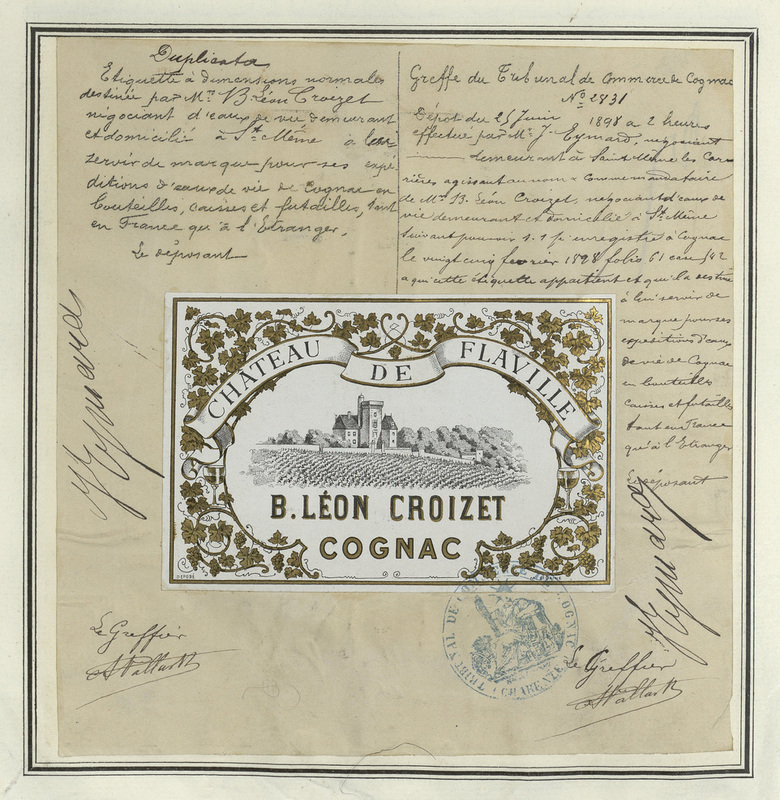 Duplicata
Etiquette à dimensions normales
destinée par Mr. B Léon Croizet
négociant d'eaux de vie demeurant
et domicilié à St. Même à lui
servir de marque pour ses expé
ditions d'eaux de vie de Cognac en
bouteilles, caisses et futailles, tant
en France qu'à l'Etranger.
Le déposant
J Eymard
Greffe du Tribunal de Commerce de Cognac
No. 2831
Dépôt du 25 Juin 1898 à 2 heures
effectué par Mr. J. Eymard, négociant
demeurant à Saint Même les Car
rières agissant au nom & comme mandataire
de Mr. B. Léon Croizet, négociant d'eaux de
vie demeurant et domicilié à St. Même
suivant pouvoir s. s. p. enregistré à Cognac
le vingt cinq février 1898 folio 61 case
a qui cette étiquette appartient et qui la destine
à lui servir de
marque pour ses
expéditions d'eaux
de vie de Cognac
en bouteilles
caisses et futailles
tant en France
qu'à l'Etranger
Le déposant
J Eymard
CHÂTEAU DE FLAVILLE
B. LÉON CROIZET
COGNAC
DÉPOSÉ
Le Greffier
TRIBUNAL DE COGNAC
(CHARENTE)
Le Greffier